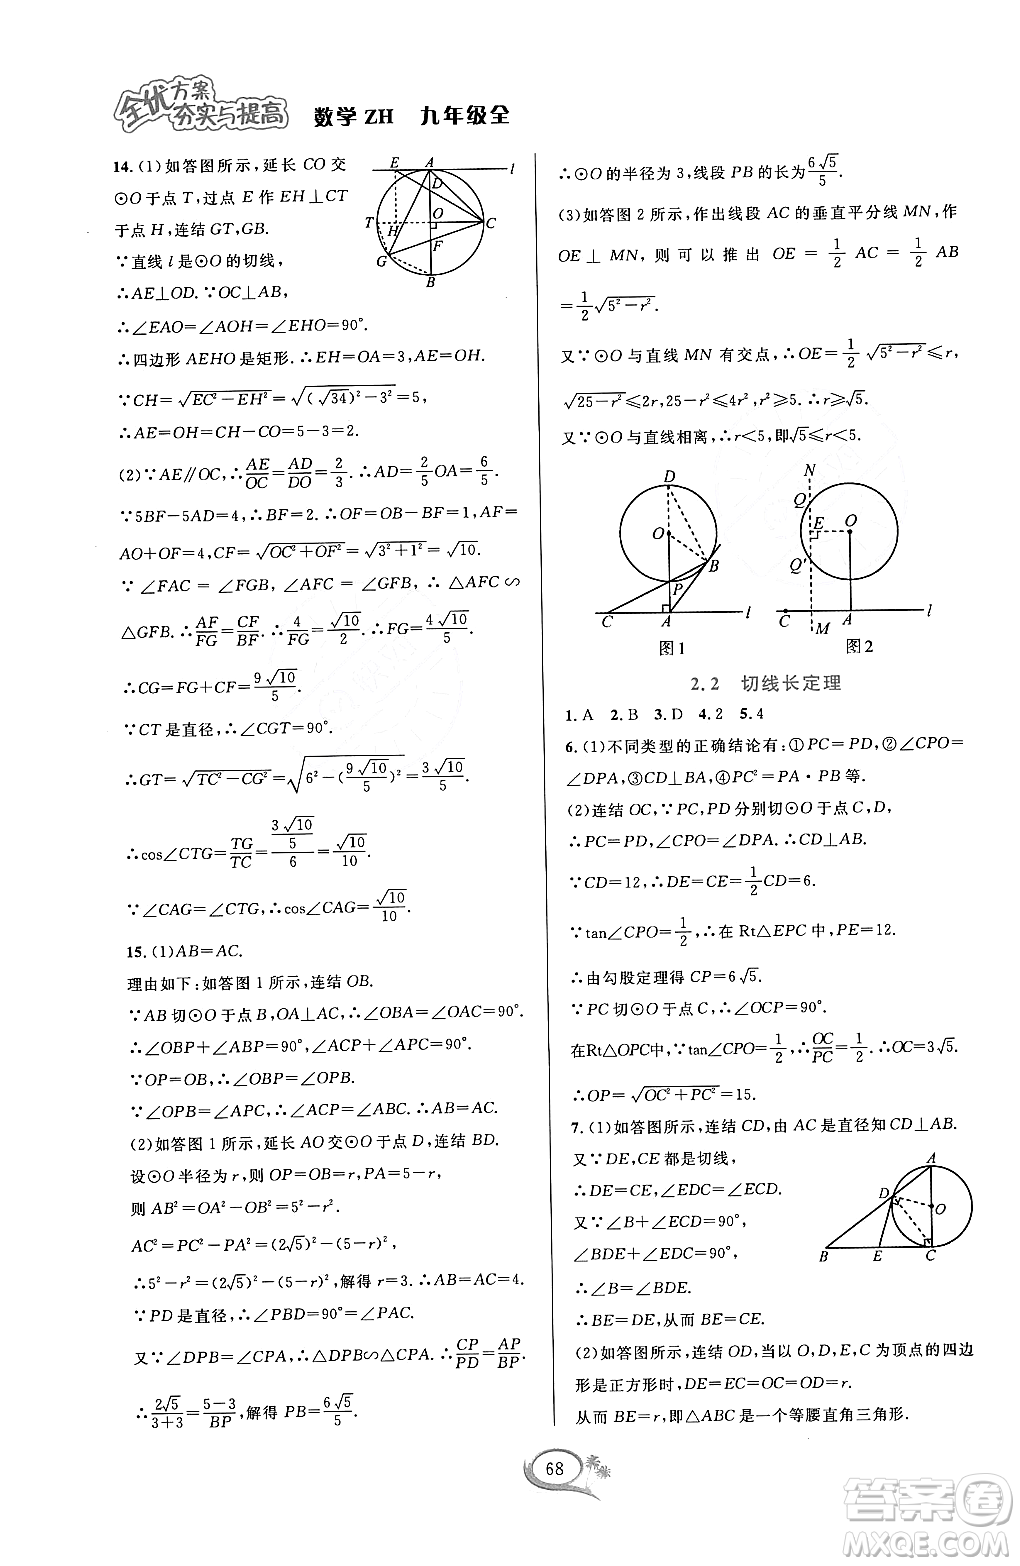 全优方案
夯实与提高 数学ZH 九年级全
14.(1)如答图所示,延长 CO 交
⊙O 于点 T,过点 E 作 EH⊥CT
于点 H,连结 GT,GB.
∵直线 l 是⊙O 的切线,
∴AE⊥OD.∵OC⊥AB,
∴∠EAO=∠AOH=∠EHO=90°.
∴四边形 AEHO 是矩形.∴EH=OA=3,AE=OH.
∵CH=√(EC²-EH²)=√((√34)²-3²)=5,
∴AE=OH=CH-CO=5-3=2.
(2)∵AE∥OC,∴AE/OC=AD/DO=2/3.∴AD=2/5OA=6/5.
∵5BF-5AD=4,∴BF=2.∴OF=OB-BF=1,AF=
AO+OF=4,CF=√(OC²+OF²)=√(3²+1²)=√10.
∵∠FAC=∠FGB,∠AFC=∠GFB,∴△AFC∽
△GFB.∴AF/FG=CF/BF.∴4/FG=√10/2.∴FG=4√10/5.
∴CG=FG+CF=9√10/5.
∵CT 是直径,∴∠CGT=90°.
∴GT=√(TC²-CG²)=√(6²-(9√10/5)²)=3√10/5.
∴cos∠CTG=TG/TC=(3√10/5)/6=√10/10.
∵∠CAG=∠CTG,∴cos∠CAG=√10/10.
15.(1)AB=AC.
理由如下:如答图 1 所示,连结 OB.
∵AB 切⊙O 于点 B,OA⊥AC,∴∠OBA=∠OAC=90°.
∴∠OBP+∠ABP=90°,∠ACP+∠CPA=90°.
∵OP=OB,∴∠OBP=∠OPB.
∵∠OPB=∠APC,∴∠ACP=∠ABC.∴AB=AC.
(2)如答图 1 所示,延长 AO 交⊙O 于点 D,连结 BD.
设⊙O 半径为 r,则 OP=OB=r,PA=5-r,
则 AB²=OA²-OB²=5²-r²,
AC²=PC²-PA²=(2√5)²-(5-r)².
∴5²-r²=(2√5)²-(5-r)²,解得 r=3.∴AB=AC=4.
∵PD 是直径,∴∠PBD=90°=∠PAC.
又∵∠DPB=∠CPA,∴△DPB∽△CPA.∴CP/PD=AP/BP.
∴2√5/(3+3)=(5-3)/BP,解得 PB=6√5/5.
E A l
D
T H O C
F
G
B
∴⊙O 的半径为 3,线段 PB 的长为6√5/5.
(3)如答图 2 所示,作出线段 AC 的垂直平分线 MN,作
OE⊥MN,则可以推出 OE=1/2 AC=1/2 AB
=1/2√(5²-r²).
又∵⊙O 与直线 MN 有交点,∴OE=1/2√(5²-r²)≤r,
√(25-r²)≤2r,25-r²≤4r²,r²≥5.∴r≥√5.
又∵⊙O 与直线相离,∴r<5,即√5≤r<5.
D
O
B
P
C A l
图1
N
Q
E O
Q′
C A l
M
图2
2.2 切线长定理
1.A 2.B 3.D 4.2 5.4
6.(1)不同类型的正确结论有:①PC=PD,②∠CPO=
∠DPA,③CD⊥BA,④PC²=PA·PB等.
(2)连结 OC,∵PC,PD 分别切⊙O 于点 C,D,
∴PC=PD,∠CPO=∠DPA.∴CD⊥AB.
∵CD=12,∴DE=CE=1/2CD=6.
∵tan∠CPO=1/2,∴在 Rt△EPC 中,PE=12.
∴由勾股定理得 CP=6√5.
∵PC 切⊙O 于点 C,∴∠OCP=90°.
在Rt△OPC中,∵tan∠CPO=1/2,∴OC/PC=1/2.∴OC=3√5.
∴OP=√(OC²+PC²)=15.
7.(1)如答图所示,连结 CD,由 AC 是直径知 CD⊥AB.
又∵DE,CE 都是切线,
∴DE=CE,∠EDC=∠ECD.
又∵∠B+∠ECD=90°,
∠BDE+∠EDC=90°,
∴∠B=∠BDE.
∴BE=DE,从而 BE=CE.
A
D
O
B E C
(2)如答图所示,连结 OD,当以 O,D,E,C 为顶点的四边
形是正方形时,DE=EC=CO=OD=r.
从而 BE=r,即△ABC 是一个等腰直角三角形.
68
答案圈
MXQE.COM